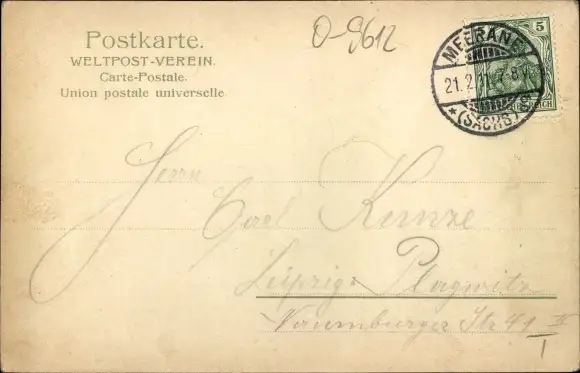 Postkarte.
WELTPOST-VEREIN.
Carte-Postale.
Union postale universelle
O-9612
5
MEERANE
21.2.11. 7-8V.
*(SACHS)*
REICH
Herrn
Carl Kunze
Leipzig-Plagwitz
Naumburger Str 41 II
I